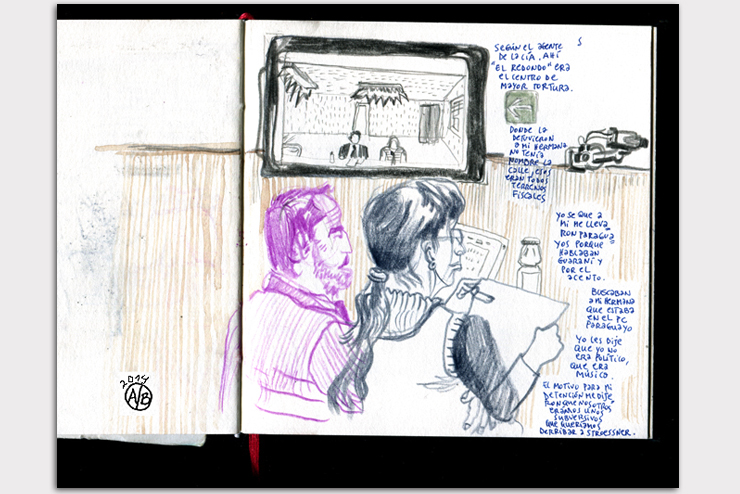 SEGÚN EL AGENTE
DE LA CÍA. AHÍ
"EL REDONDO" ERA
EL CENTRO DE
MAYOR TORTURA.
DONDE LA
DETUVIERON
A MI HERMANA
NO TENÍA
NOMBRE LA
CALLE, ESOS
ERAN TODOS
TERRENOS
FISCALES
YO SE QUE A
MI ME LLEVA
RON PARAGUA
YOS PORQUE
HABLABAN
GUARANÍ Y
POR EL
ACENTO.
BUSCABAN
A MI HERMANA
QUE ESTABA
EN EL PC
PARAGUAYO
YO LES DIJE
QUE YO NO
ERA POLÍTICO,
QUE ERA
MÚSICO.
EL MOTIVO PARA MI
DETENCIÓN ME DIJE
RON QUE NOSOTROS
ERAMOS UNOS
SUBVERSIVOS
QUE QUERIAMOS
DERRIBAR A STROESSNER.
2014